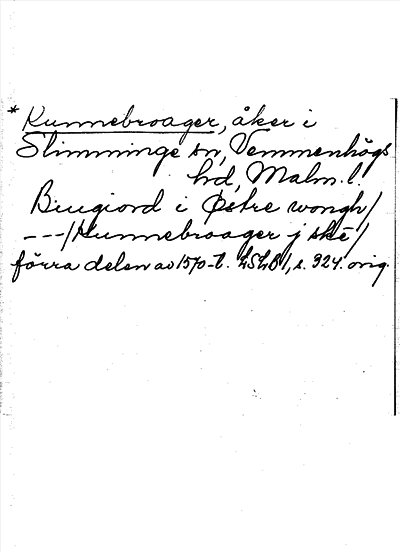 * Kunnebroager, åker i
Slimminge sn, Vemmenhögs
hd, Malm. l.
Brugiord i Østre wongh/
---/Kunnebroager j ske/
förra delen av 1570-t. LSLB 1, s. 324. orig.